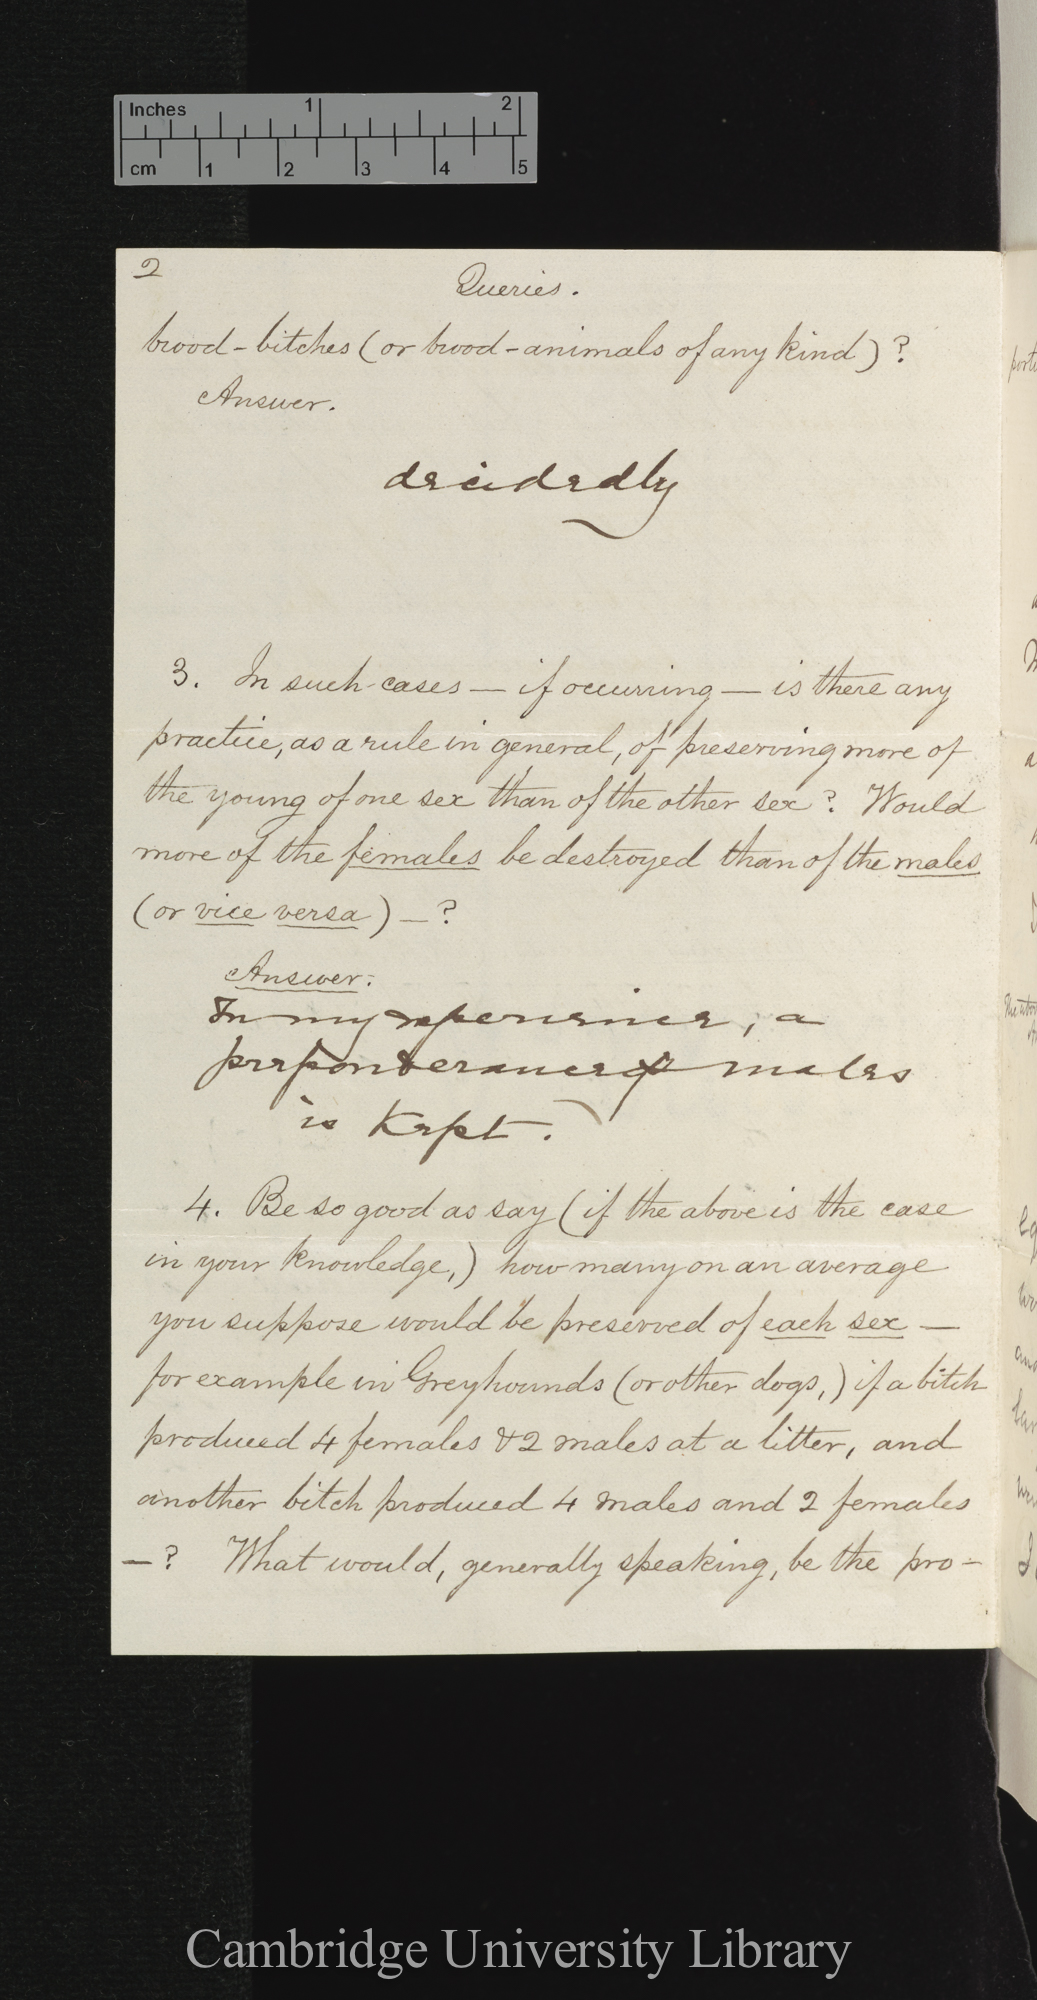 Inches 1 2
cm 1 2 3 4 5
2
Queries.
brood-bitches (or brood-animals of any kind)?
Answer.
decidedly
3. In such cases — if occurring — is there any
practice, as a rule in general, of preserving more of
the young of one sex than of the other sex? Would
more of the females be destroyed than of the males
(or vice versa) —?
Answer.
In my experience, a
preponderance of males
is Kept.
4. Be so good as say (if the above is the case
in your knowledge,) how many on an average
you suppose would be preserved of each sex —
for example in Greyhounds (or other dogs,) if a bitch
produced 4 females & 2 males at a litter, and
another bitch produced 4 males and 2 females
—? What would, generally speaking, be the pro-
Cambridge University Library